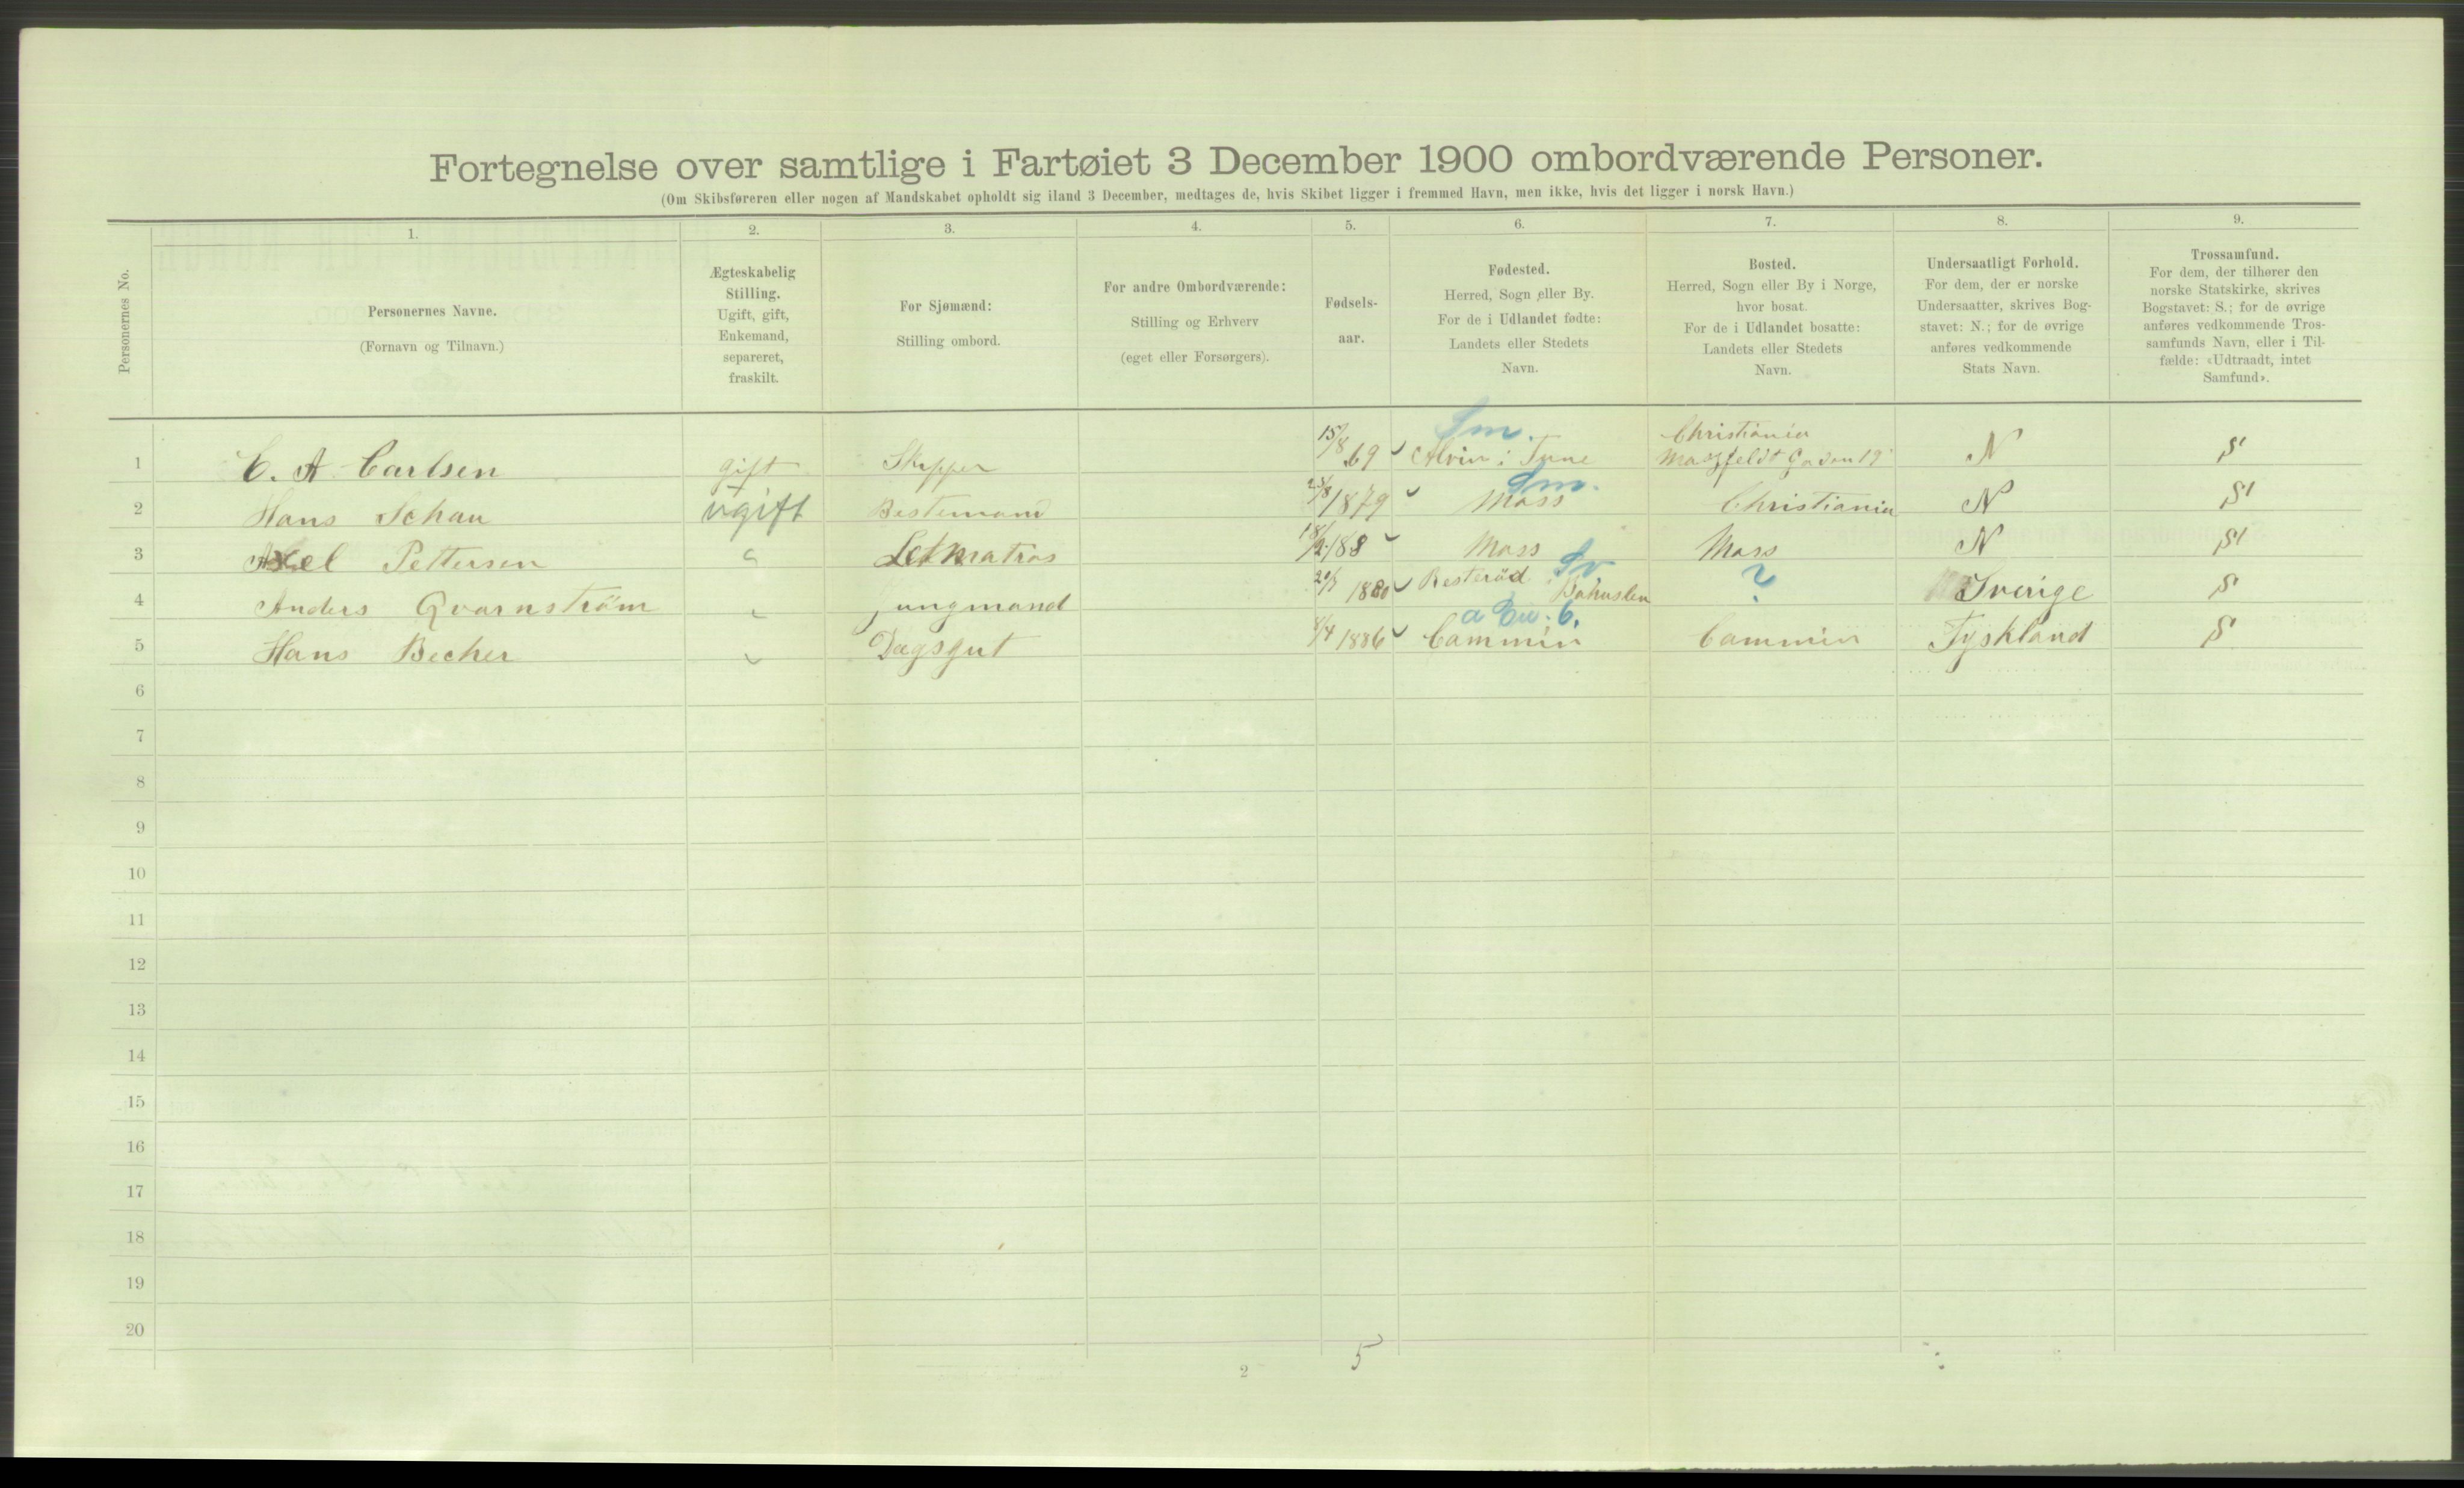 Fortegnelse over samtlige i Fartøiet 3 December 1900 ombordværende Personer.
(Om Skibsføreren eller nogen af Mandskabet opholdt sig iland 3 December, medtages de, hvis Skibet ligger i fremmed Havn, men ikke, hvis det ligger i norsk Havn.)
Personernes No.
1.
Personernes Navne.
(Fornavn og Tilnavn.)
2.
Ægteskabelig
Stilling.
Ugift, gift,
Enkemand,
separeret,
fraskilt.
3.
For Sjømænd:
Stilling ombord.
4.
For andre Ombordværende:
Stilling og Erhverv
(eget eller Forsørgers).
5.
Fødsels-
aar.
6.
Fødested.
Herred, Sogn eller By.
For de i Udlandet fødte:
Landets eller Stedets
Navn.
7.
Bosted.
Herred, Sogn eller By i Norge,
hvor bosat.
For de i Udlandet bosatte:
Landets eller Stedets
Navn.
8.
Undersaatligt Forhold.
For dem, der er norske
Undersaatter, skrives Bog-
stavet: N.; for de øvrige
anføres vedkommende
Stats Navn.
9.
Trossamfund.
For dem, der tilhører den
norske Statskirke, skrives
Bogstavet: S.; for de øvrige
anføres vedkommende Tros-
samfunds Navn, eller i Til-
fælde: «Udtraadt, intet
Samfund».
Sm.
Christiania
1 C. A. Carlsen gift Skipper 15/8 69 Alvin i Tune Gaden 19 N S
Sm.
2 Hans Schau ugift Bestemand /8 1879 Moss Christiania N S
3 Axel Pettersen " Letmatros 18/2 188 Moss Moss N S
Sv
4 Anders Qvarnström " jungmand 1880 Resteröd Bohuslen ? Sverige S
a Eu. 6.
5 Hans Becher " Dægsgut 8/4 1886 Cammin Cammin Tyskland S
6
7
8
9
10
11
12
13
14
15
16
17
18
19
20
2
5